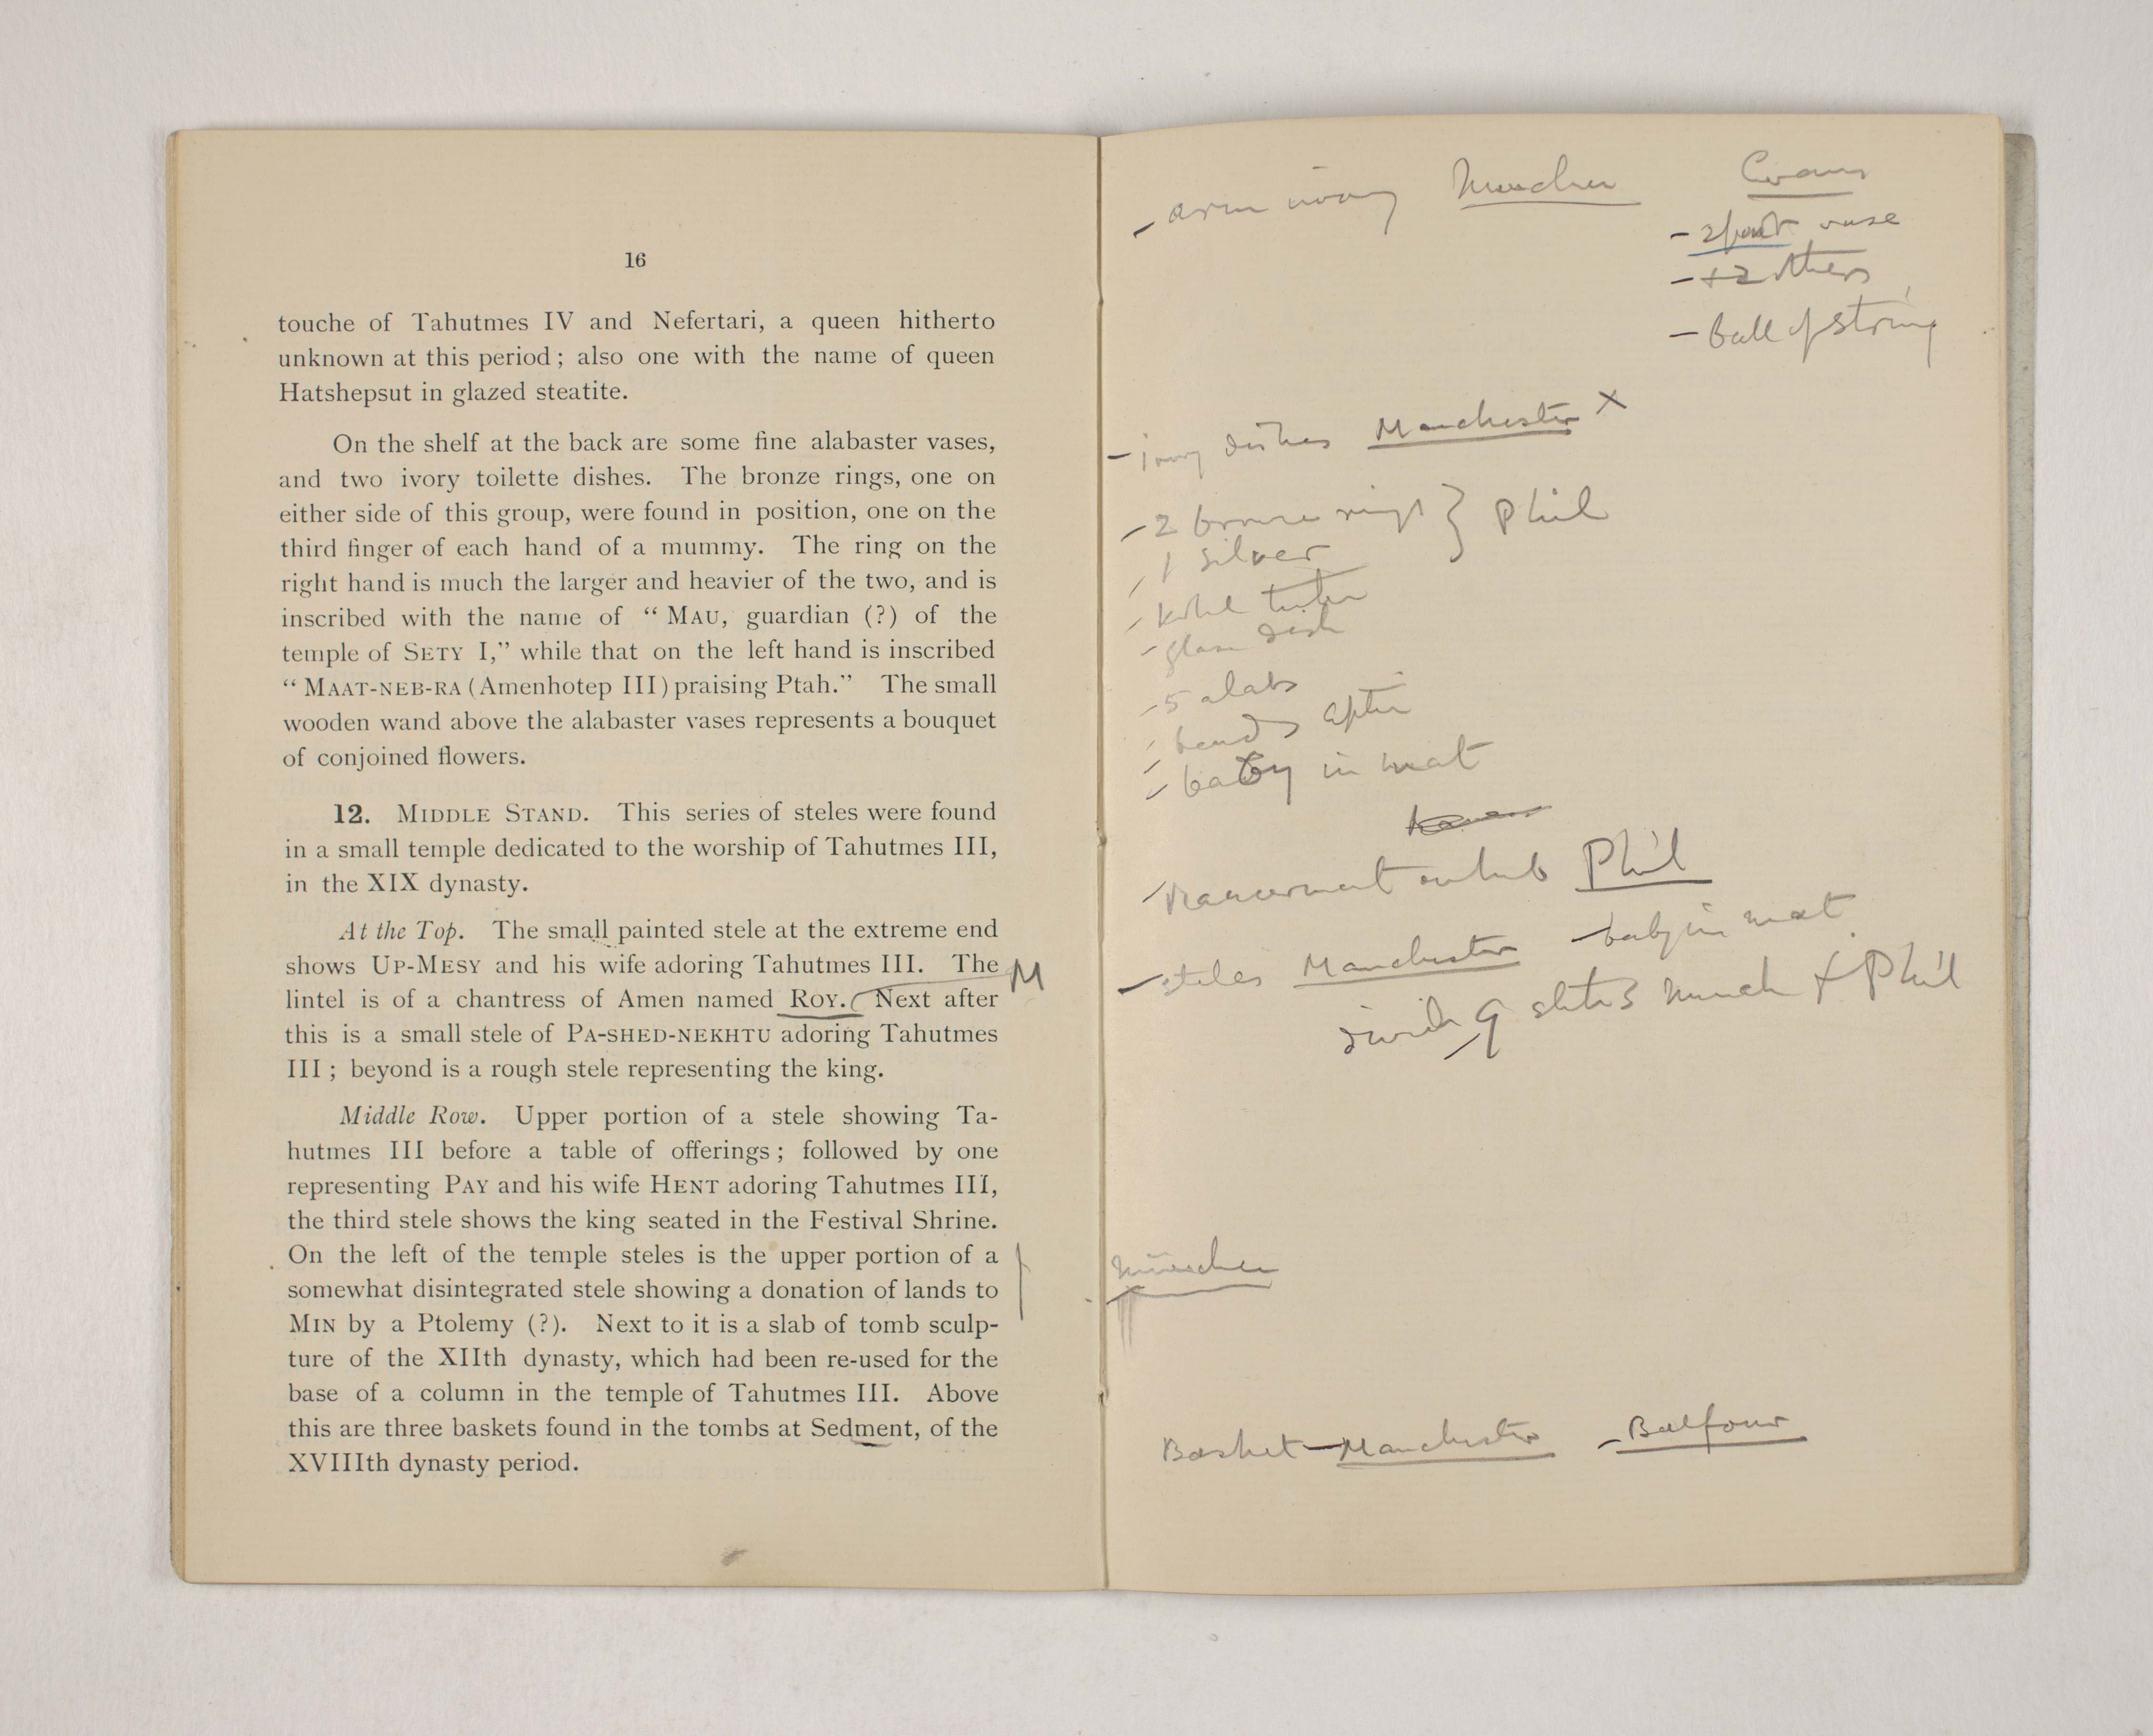 16
touche of Tahutmes IV and Nefertari, a queen hitherto
unknown at this period; also one with the name of queen
Hatshepsut in glazed steatite.
On the shelf at the back are some fine alabaster vases,
and two ivory toilette dishes. The bronze rings, one on
either side of this group, were found in position, one on the
third finger of each hand of a mummy. The ring on the
right hand is much the larger and heavier of the two, and is
inscribed with the name of “ MAU, guardian (?) of the
temple of SETY I,” while that on the left hand is inscribed
“ MAAT-NEB-RA (Amenhotep III) praising Ptah.” The small
wooden wand above the alabaster vases represents a bouquet
of conjoined flowers.
12. MIDDLE STAND. This series of steles were found
in a small temple dedicated to the worship of Tahutmes III,
in the XIX dynasty.
At the Top. The small painted stele at the extreme end
shows UP-MESY and his wife adoring Tahutmes III. The
M
lintel is of a chantress of Amen named ROY. Next after
this is a small stele of PA-SHED-NEKHTU adoring Tahutmes
III; beyond is a rough stele representing the king.
Middle Row. Upper portion of a stele showing Ta-
hutmes III before a table of offerings; followed by one
representing PAY and his wife HENT adoring Tahutmes III,
the third stele shows the king seated in the Festival Shrine.
On the left of the temple steles is the upper portion of a
somewhat disintegrated stele showing a donation of lands to
MIN by a Ptolemy (?). Next to it is a slab of tomb sculp-
ture of the XIIth dynasty, which had been re-used for the
base of a column in the temple of Tahutmes III. Above
this are three baskets found in the tombs at Sedment, of the
XVIIIth dynasty period.
- arm ivory München
Evans
- 2 part vase
- + 2 others
- ball of string
- ivory dishes Manchester x
- 2 bronze rings } Phil
- 1 silver
- kohl tube
- glass dish
- 5 alabs
- beads after
- baby in mat
Phil
- steles Manchester - baby in mat
divide 9 Munch + Phil
München
Basket - Manchester - Balfour